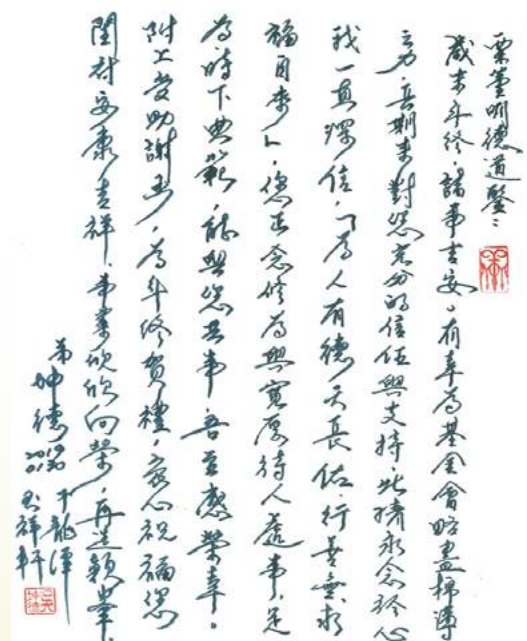 栗董明德道鑒：
歲末年終，諸事吉安。有幸為基金會略盡棉薄
之力，長期來對您充分的信任與支持，此情永念於心
我一直深信，「為人有德天長佑，行善無求
福自來」，您正念修為與寬厚待人處事，足
為時下典範，能與您共事，吾至感榮幸。
附上受助謝函，為年終賀禮，衷心祝福您
闔府安康吉祥，事業欣欣向榮，再造顛峯．
弟 坤德 2019 01/30
于龍潭
玉祥軒